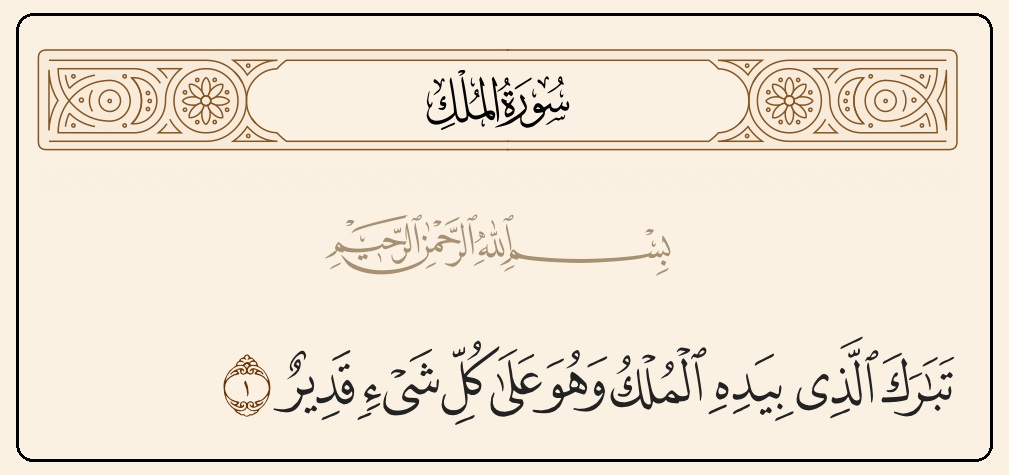 سُورَةُ المُلْكِ
بِسْمِ ٱللَّهِ ٱلرَّحْمَٰنِ ٱلرَّحِيمِ
تَبَٰرَكَ ٱلَّذِى بِيَدِهِ ٱلْمُلْكُ وَهُوَ عَلَىٰ كُلِّ شَىْءٍ قَدِيرٌ ١